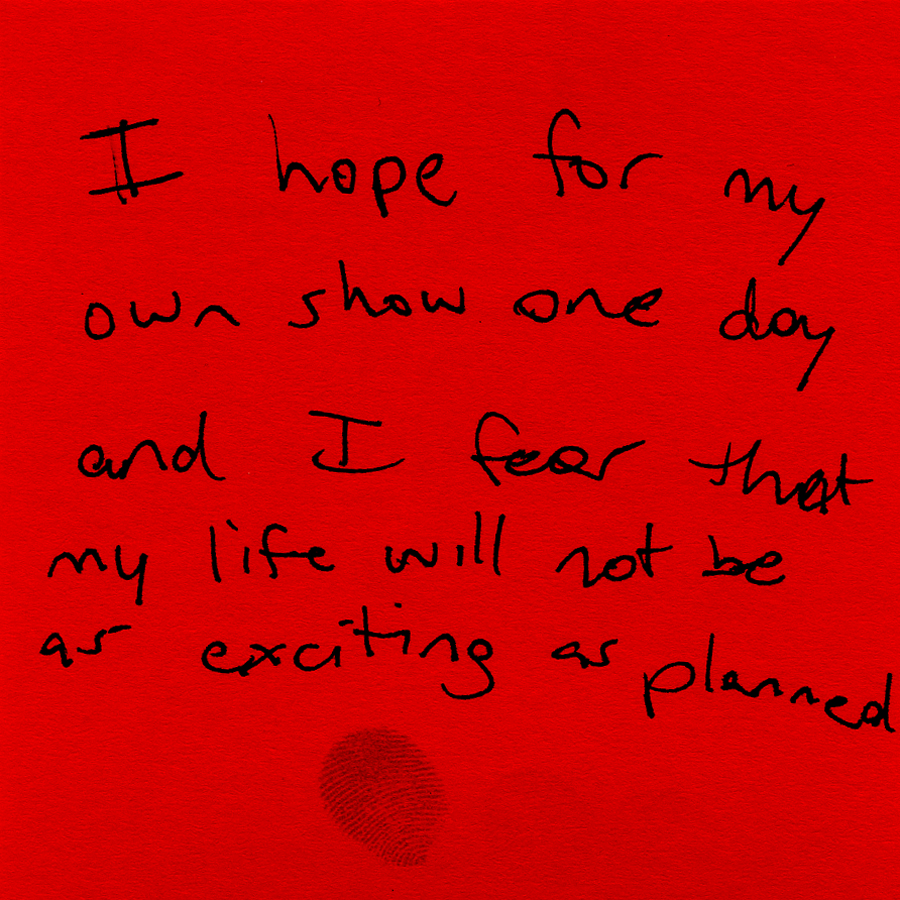 I hope for my
own show one day
and I fear that
my life will not be
as exciting as planned